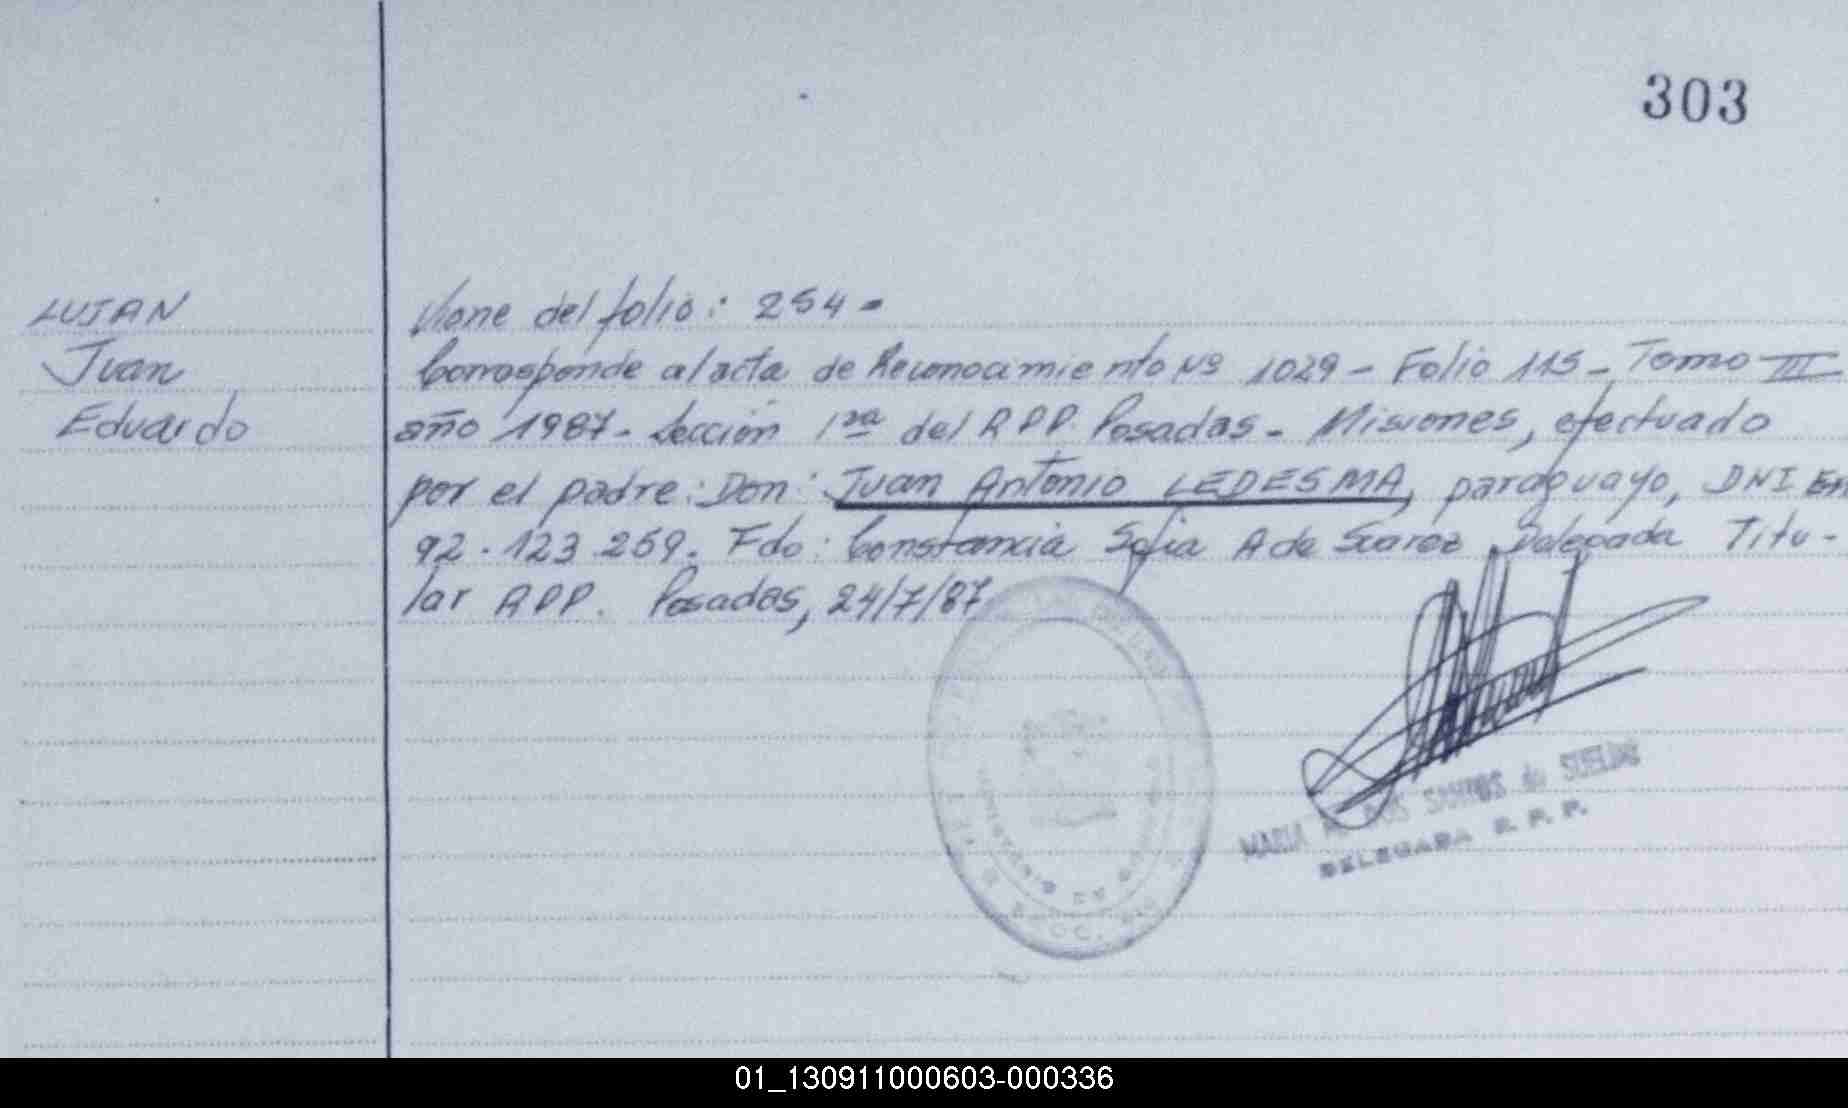 303
LUJAN
Juan
Eduardo
Viene del folio: 254 -
Corresponde al acta de Reconocimiento Nº 1029 - Folio 115 - Tomo III
año 1987 - Sección 1ra del RPP. Posadas - Misiones, efectuado
por el padre: Don: Juan Antonio LEDESMA, paraguayo, DNI
92.123.259. Fdo: Constancia Sofia A de Suarez Delegada Titu-
lar RPP. Posadas, 24/7/87
MARIA DOS SANTOS de
DELEGADA R. P. P.
01_130911000603-000336